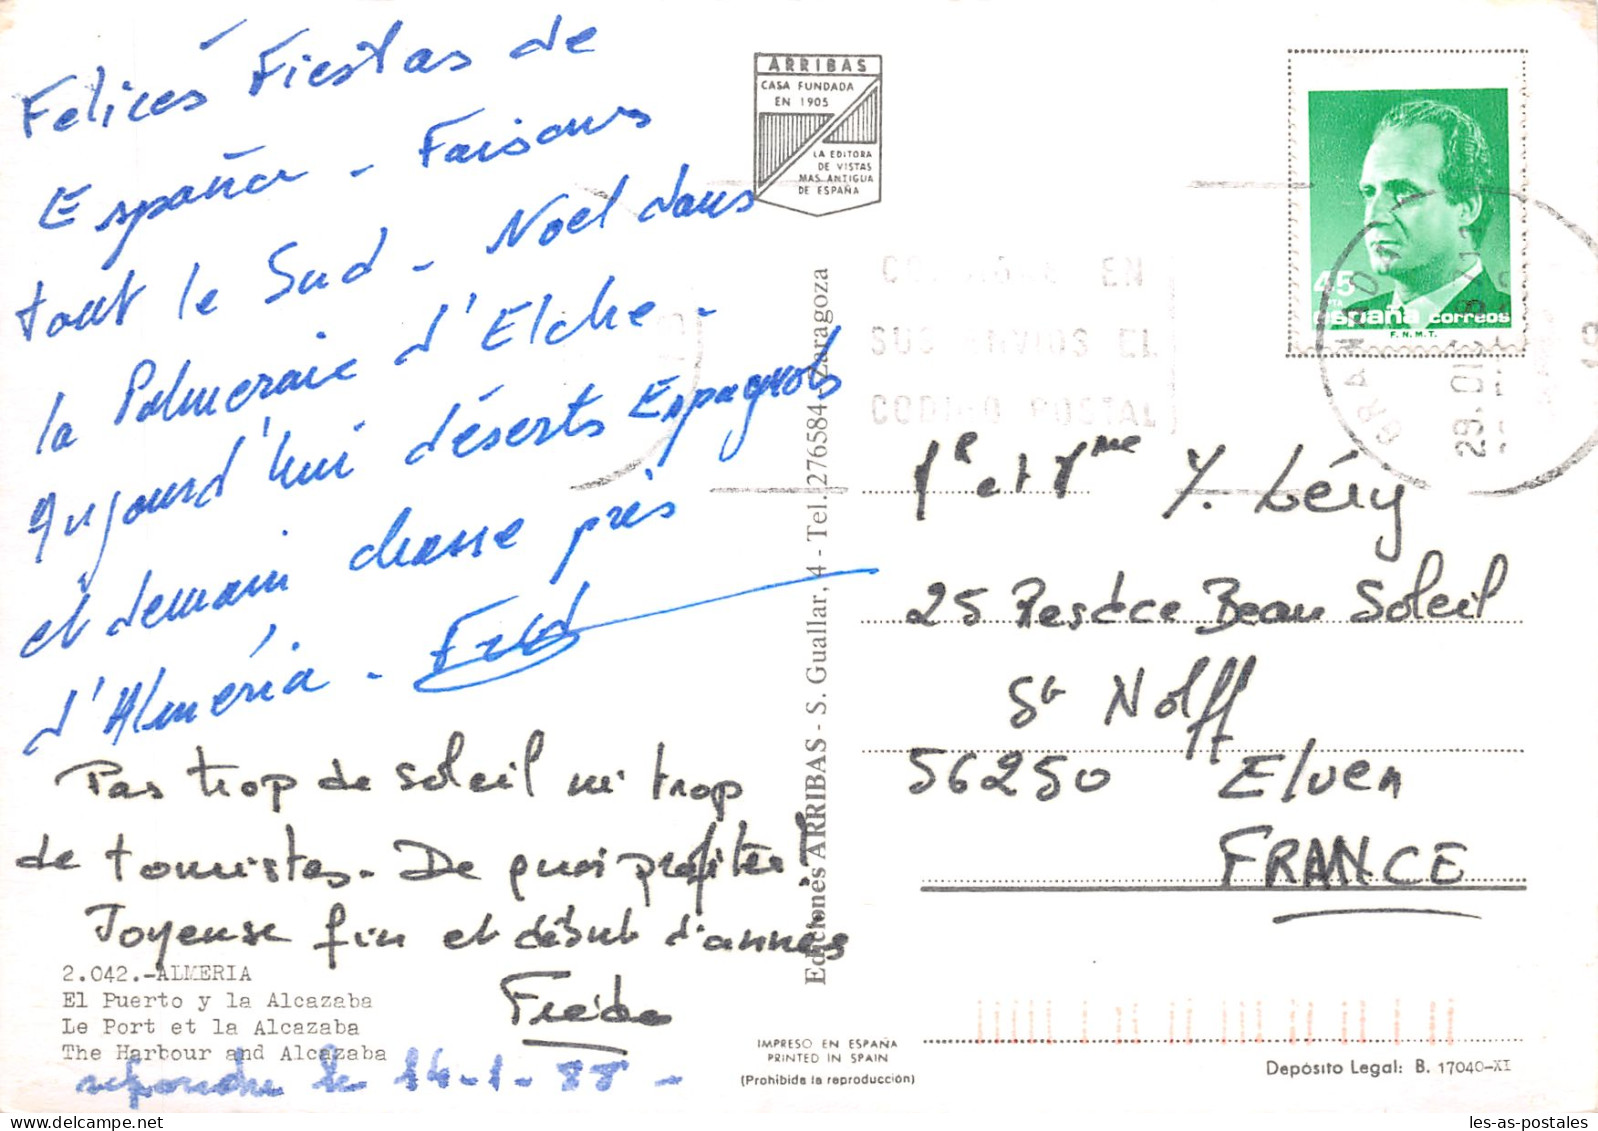 Felices Fiestas de
España - Faisons
tout le Sud - Noël dans
la Palmeraie d'Elche -
Aujourd'hui déserts Espagnols
et demain chasse près
d'Alméria - Fred
Pas trop de soleil ni trop
de touristes - De quoi profiter!
Joyeuse fin et début d'années
Frédo
2.042.-ALMERIA
El Puerto y la Alcazaba
Le Port et la Alcazaba
The Harbour and Alcazaba
répondu le 14-1-88 -
ARRIBAS
CASA FUNDADA
EN 1905
LA EDITORA
DE VISTAS
MAS ANTIGUA
DE ESPAÑA
Ediciones ARRIBAS - S. Guallar, 4 - Tel. 276584 - Zaragoza
EN
SUS ENVIOS EL
CODIGO POSTAL
45
PTA
españa correos
F.N.M.T.
Mr et Mme Y. Léry
25 Resdce Beau Soleil
St Nolff
56250 Elven
FRANCE
IMPRESO EN ESPAÑA
PRINTED IN SPAIN
(Prohibida la reproducción)
Depósito Legal: B. 17040-XI
les-as-postales